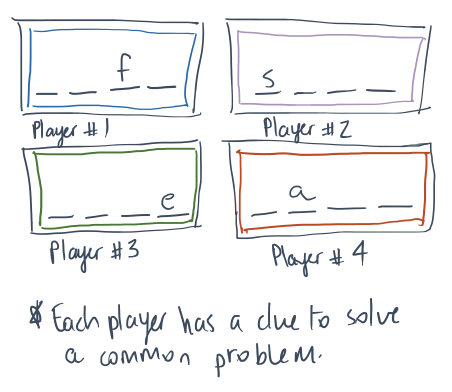 _ _ f _
s _ _ _
Player #1
Player #2
_ _ _ e
_ a _ _
Player #3
Player #4
Each player has a clue to solve
a common problem.